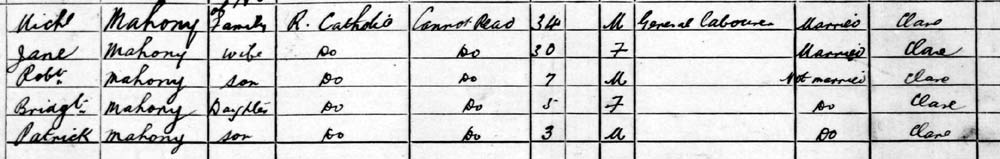 Michl Mahony of Family R. Catholic Cannot Read 34 M General Labourer Married Clare
Jane Mahony wife Do Do 30 F Married Clare
Robt Mahony son Do Do 7 M Not married Clare
Bridgt Mahony Daughter Do Do 5 F Do Clare
Patrick Mahony son Do Do 3 M Do Clare